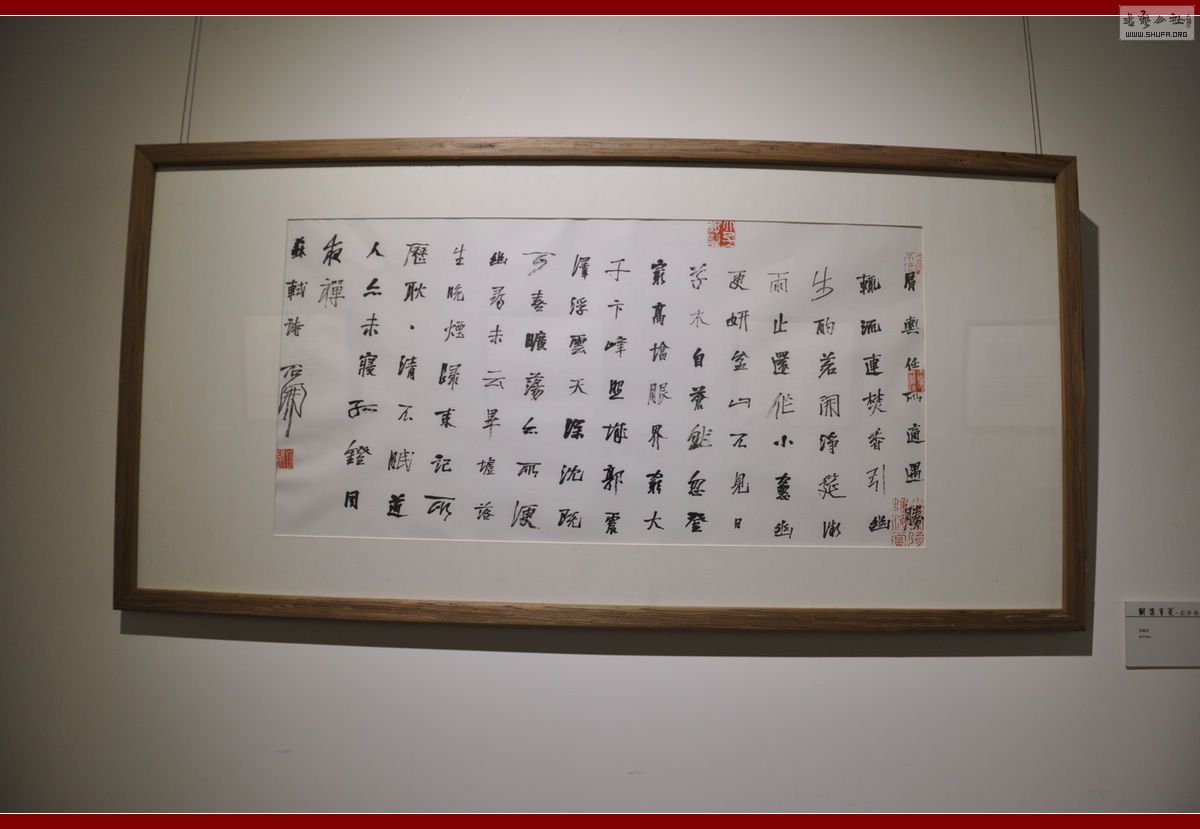 肩輿任所適遇勝
輒流連焚香引幽
步酌茗開淨筵微
雨止還作小窗幽
更妍盆山不見日
草木自蒼然忽登
最高塔眼界窮大
千卞峰照城郭震
澤浮雲天深沈既
可喜曠蕩亦所便
幽尋未云畢墟落
生晚煙歸來記所
歷耿·清不眠道
人亦未寢孤鐙同
夜禪
蘇軾詩 石開
WWW.SHUFA.ORG